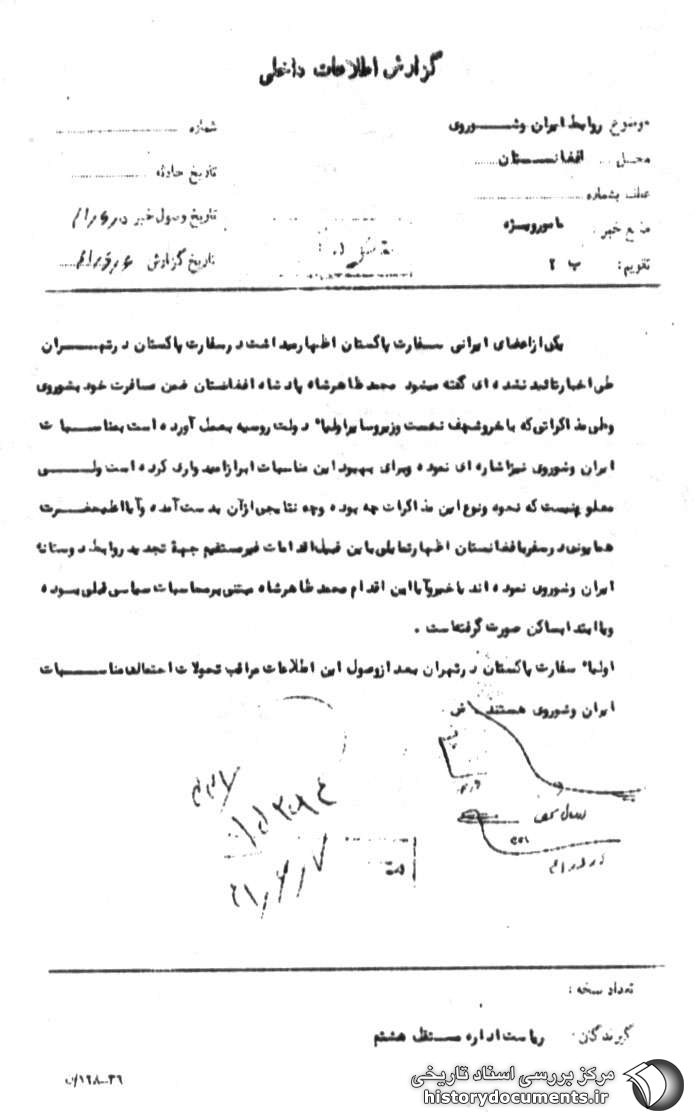 گزارش اطلاعات داخلی
موضوع روابط ایران و شوروی
شماره
محل افغانستان
تاریخ حادثه
عطف بشماره
تاریخ وصول خبر
منبع خبر: مامور ویژه
تاریخ گزارش
تقویم: ب ۲
یکی از اعضای ایرانی سفارت پاکستان اظهار میداشت در سفارت پاکستان در تهران
طی اخبار تائید نشده ای گفته میشود محمد ظاهرشاه پادشاه افغانستان ضمن مسافرت خود بشوروی
وطی مذاکراتی که با خروشچف نخست وزیر و سایر اولیاء دولت روسیه بعمل آورده است بمناسبات
ایران وشوروی نیز اشاره ای نموده و برای بهبود این مناسبات ابراز امیدواری کرده است ولی
معلوم نیست که نحوه ونوع این مذاکرات چه بوده وچه نتایجی از آن بدست آمده و آیا اعلیحضرت
همایونی در سفر بافغانستان اظهار تمایلی باین قبیل اقدامات غیرمستقیم جهة تجدید روابط دوستانه
ایران وشوروی نموده اند یا خیر و آیا این اقدام محمد ظاهرشاه مبتنی بر محاسبات سیاسی قبلی بوده
ویا ابتدا بساکن صورت گرفته است .
اولیاء سفارت پاکستان در تهران بعد از وصول این اطلاعات مراقب تحولات احتمالی مناسبات
ایران وشوروی هستند . ش
تعداد نسخه :
گیرندگان: ریاست اداره مستقل هشتم
مرکز بررسی اسناد تاریخی
historydocuments.ir